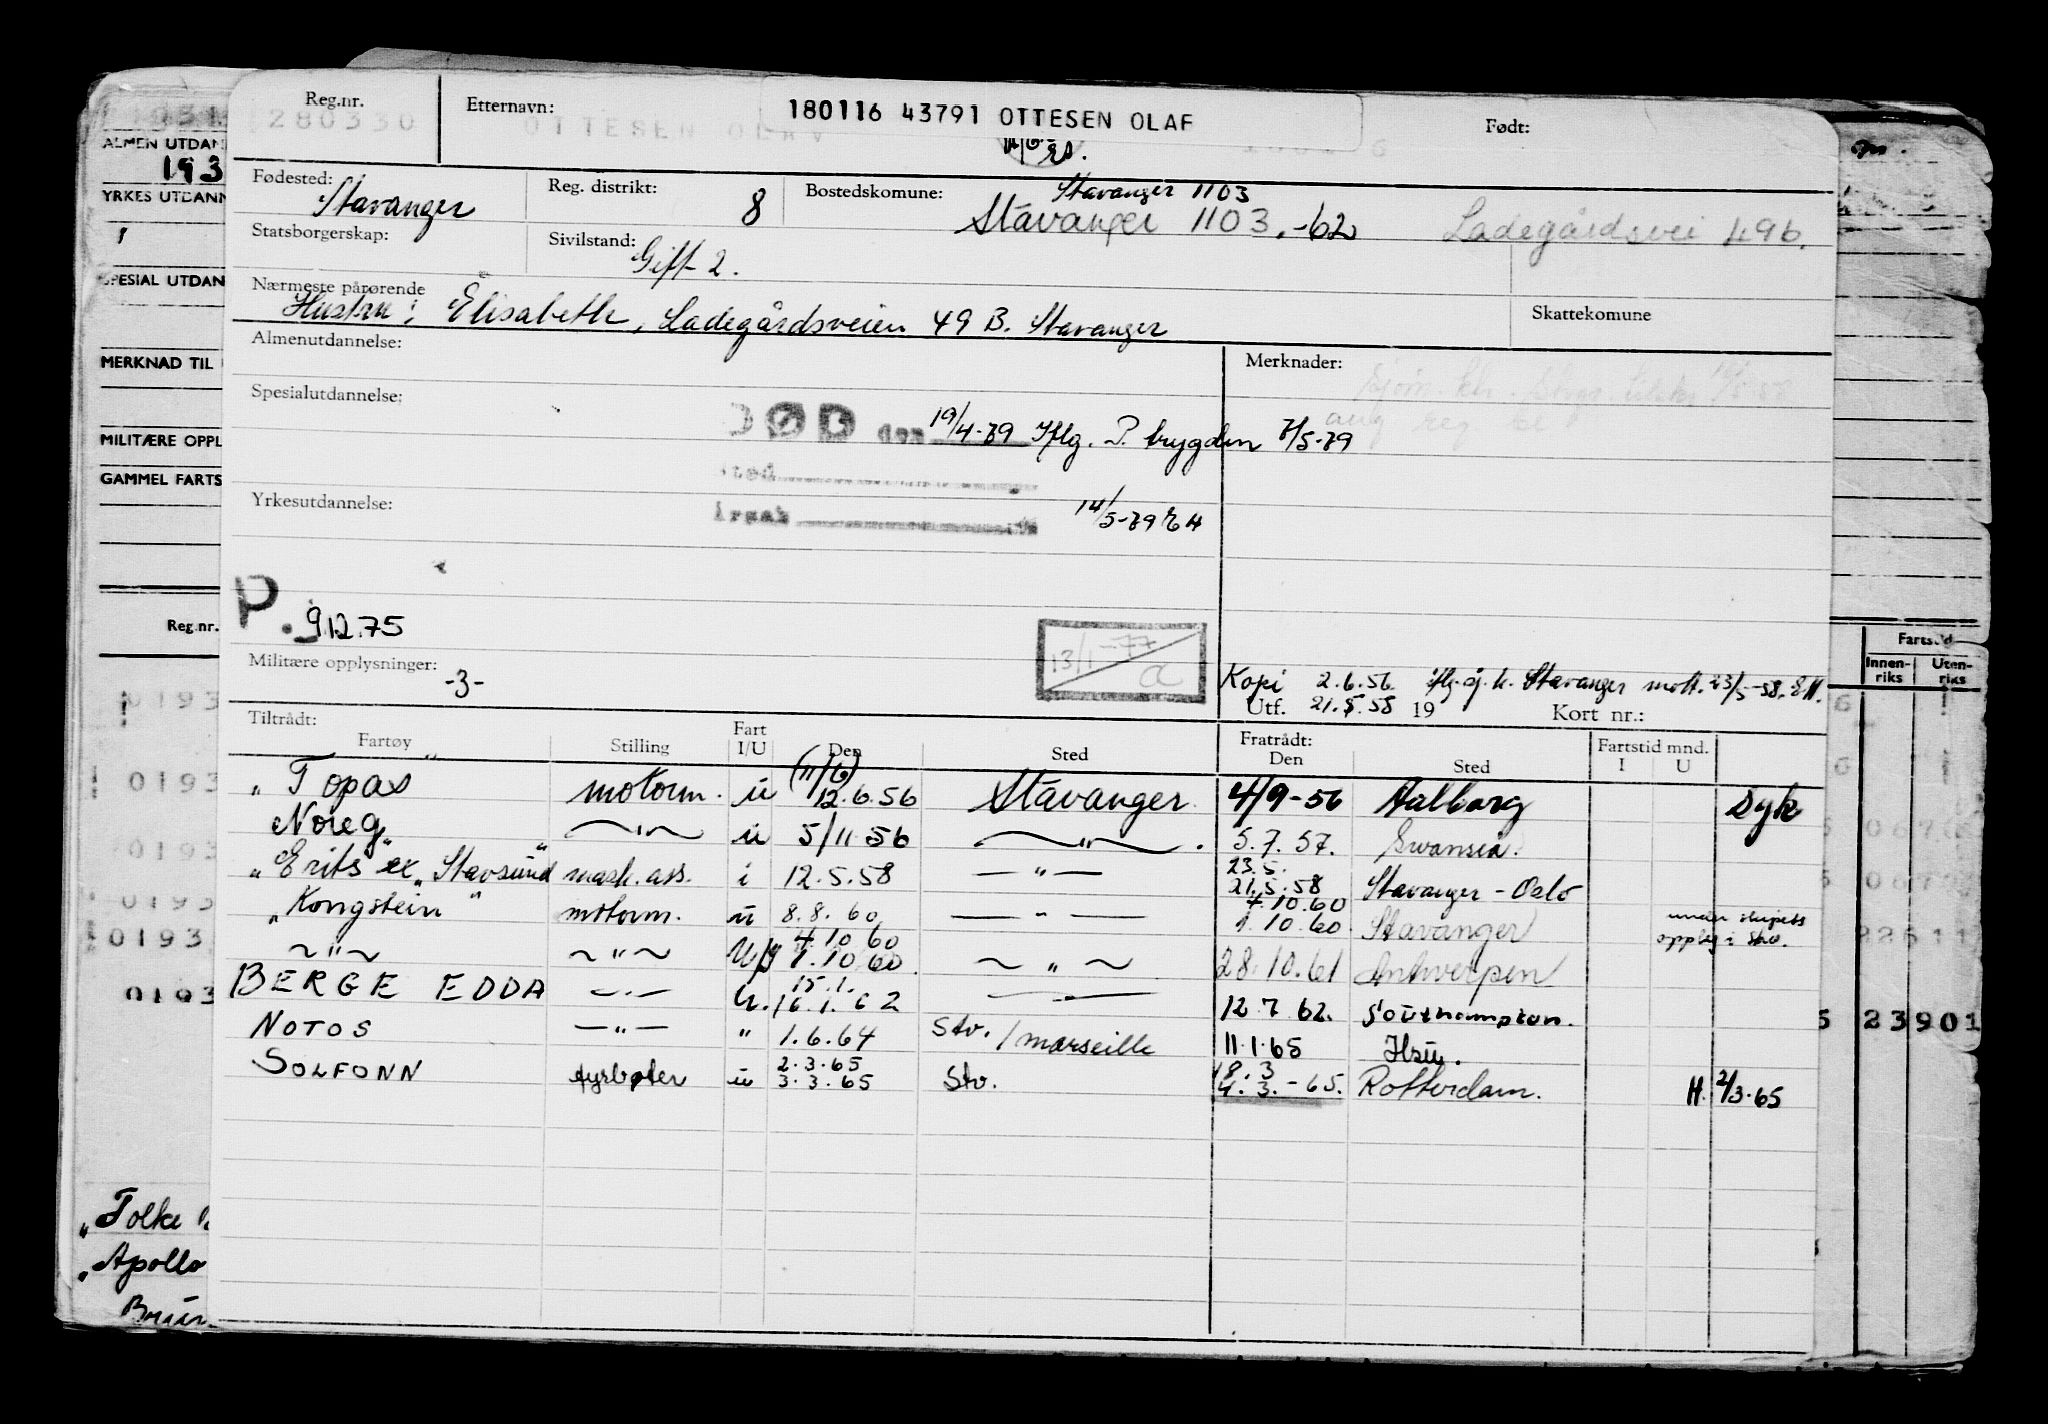 Reg.nr. Etternavn: 180116 43791 OTTESEN OLAF Født:
280330 OTTESEN OLAV
ALMEN UTDAN
193
YRKES UTDANN
SPESIAL UTDAN
MERKNAD TIL
MILITÆRE OPPL
GAMMEL FARTS
Reg.nr.
Fødested: Stavanger Reg. distrikt: 8 Bostedskomune: Stavanger 1103
Stavanger 1103.-62 Ladegårdsvei 49b.
Statsborgerskap: Sivilstand: Gift 2.
Nærmeste pårørende
Hustru: Elisabeth, Ladegårdsveien 49 B. Stavanger
Skattekomune
Almenutdannelse: Merknader:
Spesialutdannelse:
DØD den 19/4-79 Iflg. P. trygden 7/5-79
sted
årsak 14/5-79
Yrkesutdannelse:
P. 9.12.75
13/1-77
a
Militære opplysninger: -3-
Kopi 2.6.56. Iflg. sj. k. Stavanger mott. 23/5-58. EH.
Utf. 21.5.58 19 Kort nr.:
Tiltrådt: Fratrådt: Fartstid mnd.
Fartøy Stilling Fart I/U Den Sted Den Sted I U
"Topas motorm. u (11/6) 12.6.56 Stavanger 4/9-56 Aalborg syk
Noreg" —"— u 5/11 56 —"— 5.7.57. Swansea.
"Erits ex "Stavsund" mask.ass. i 12.5.58 —"— 23.5. 21.5.58 Stavanger - Oslo
"Kongstein" motorm. u 8.8.60 —"— 4.10.60 1.10.60. Stavanger under skipets opplag i Stv.
—"— —"— U 4.10 60 1.10 60. —"— 28.10.61 Antwerpen
BERGE EDDA —"— U. 15.1. 16.1.62 —"— 12.7.62. Southampton.
NOTOS —"— " 1.6.64 Stv. / Marseille 11.1.65 Hsu.
SOLFONN fyrbøter u 2.3.65 3.3.65 Stv. 18.3 4.3.-65. Rotterdam. H. 2/3.65
Fartstid
Innen-riks Uten-riks
0193
0193
0193
0193
0193
23901
"Folke
"Apollo